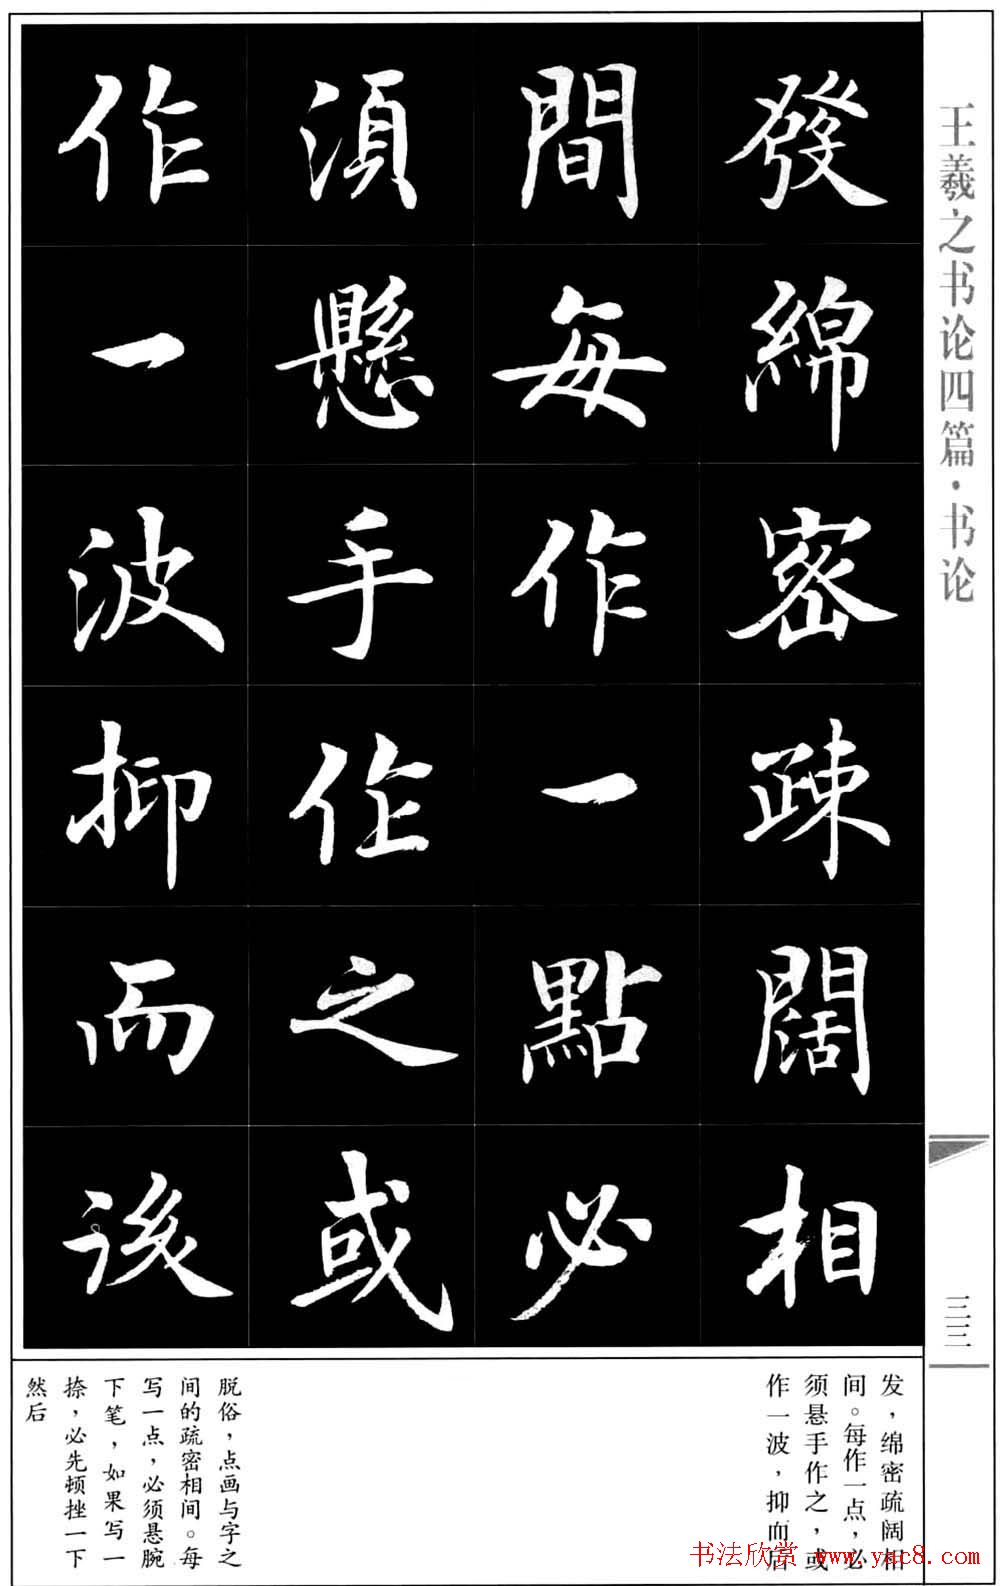 王羲之书论四篇·书论
三三
發綿密疎闊相
間每作一點必
須懸手作之或
作一波抑而後
发，绵密疏阔相
间。每作一点，必
须悬手作之，或
作一波，抑而后
脱俗，点画与字之
间的疏密相间。每
写一点，必须悬腕
下笔，如果写一
捺，必先顿挫一下
然后
书法欣赏 www.yac8.com